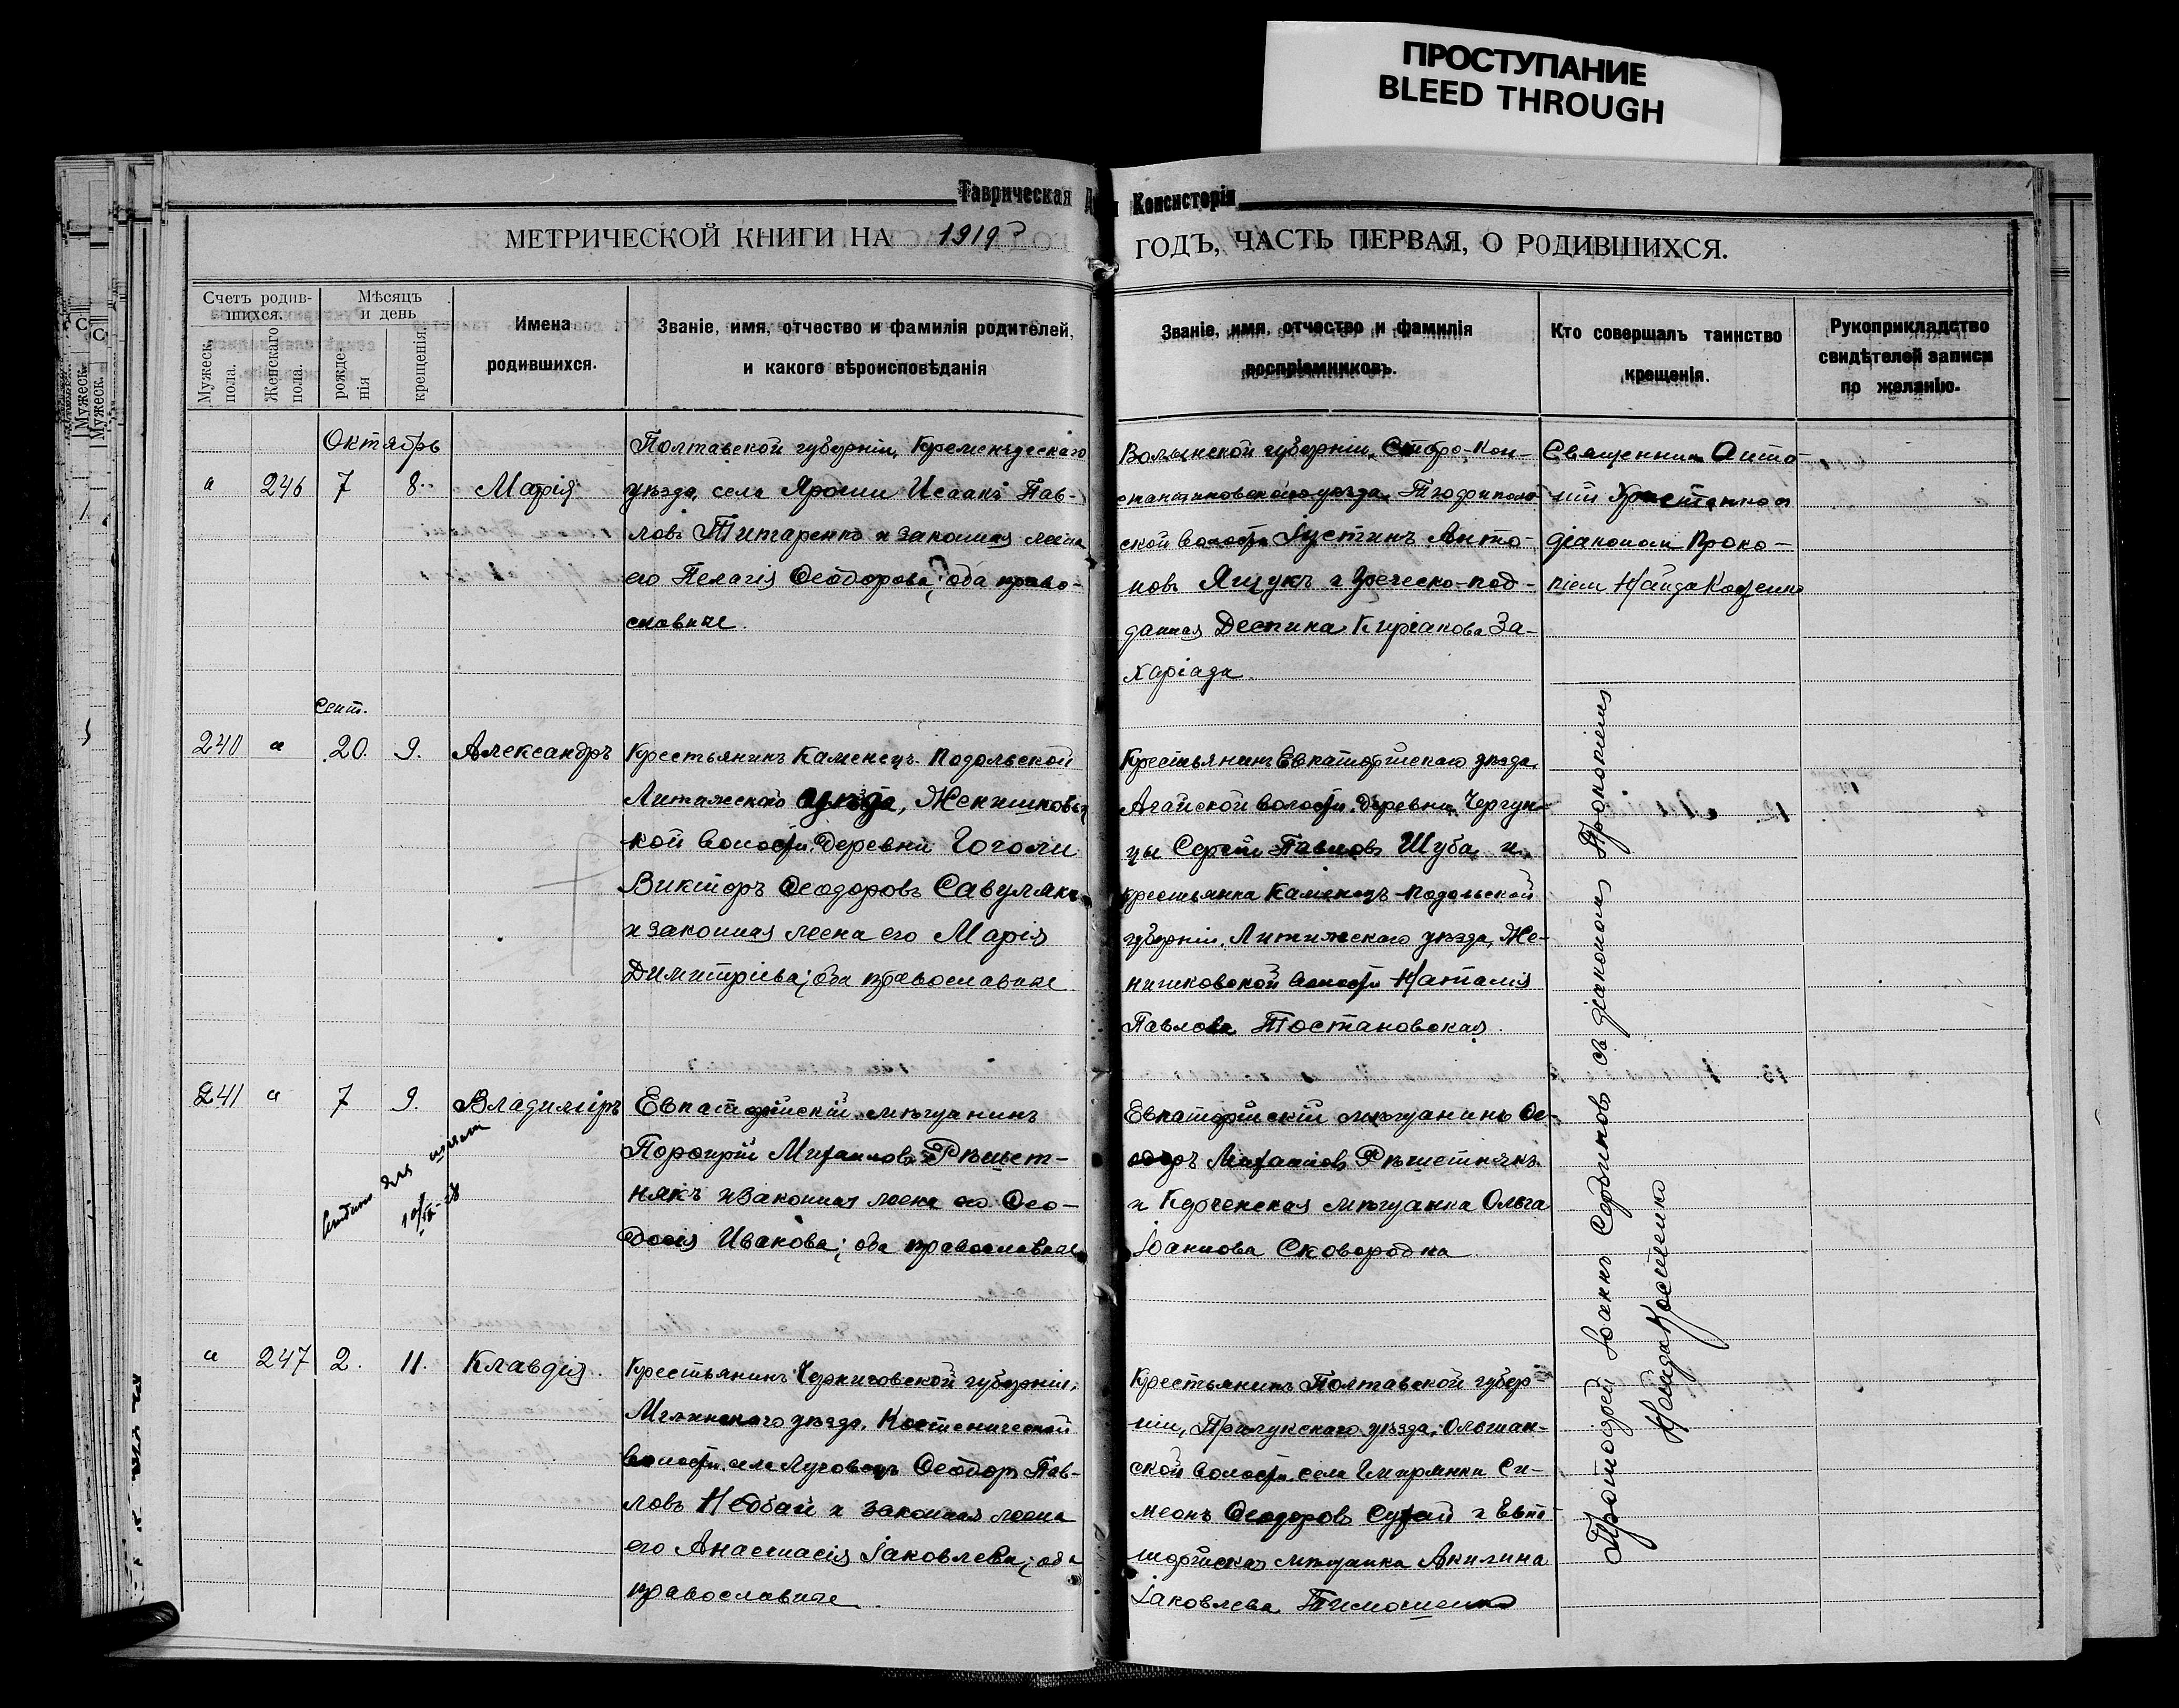 ПРОСТУПАНИЕ
BLEED THROUGH
Таврическая Консисторія
МЕТРИЧЕСКОЙ КНИГИ НА 1919 ГОДЪ, ЧАСТЬ ПЕРВАЯ, О РОДИВШИХСЯ.
Счетъ родив-
шихся.
Мужеск. пола.
Женскаго пола.
Мѣсяцъ
и день
рожде-
нія
крещенія.
Имена
родившихся.
Званіе, имя, отчество и фамилія родителей,
и какого вѣроисповѣданія
Званіе, имя, отчество и фамилія
воспріемниковъ.
Кто совершалъ таинство
крещенія.
Рукоприкладство
свидѣтелей записи
по желанію.
Октябрь
а 246 7 8. Марія
Полтавской губерніи, Кременчугскаго
уѣзда, села Ярошы Исаакъ Пав-
ловъ Титаренко и законная жена
его Пелагія Ѳеодорова; оба право-
славные.
Волынской губерніи, Старо-Кон-
стантиновскаго уѣзда, Теофиполь-
ской волости Іустинъ Анто-
новъ Ящукъ и Греческо-под-
данная Деспина Киріакова За-
харіади.
Священникъ Анто-
ній съ
діакономъ Проко-
піемъ Найда Костенко
Сент.
240 а 20. 9. Александръ
Крестьянинъ Каменецъ-Подольской
Литинскаго уѣзда, Женишковец
кой волости, деревни Гоголи
Викторъ Ѳеодоровъ Савуляк
и законная жена его Марія
Димитріева; оба православные
Крестьянинъ Евпаторійскаго уѣзда,
Агайской волости, деревни Чергун-
цы Сергій Павловъ Шуба и
крестьянка Каменецъ-Подольской
губерніи, Литинскаго уѣзда, Же-
нишковской волости Наталія
Павлова Тостановская.
241 а 7 9. Владиміръ
10/IX-28
Евпаторійскій мѣщанинъ
Порфирій Михаиловъ Рѣшет-
някъ и законная жена его Ѳео-
досія Иванова; оба православные
Евпаторійскій мѣщанинъ Ѳе-
одоръ Михаиловъ Рѣшетнякъ
и Керченская мѣщанка Ольга
Іоаннова Сковородна
а 247 2. 11. Клавдія.
Крестьянинъ Черниговской губерніи,
Мглинскаго уѣзда, Костеничской
волости, села Луговецъ Ѳеодоръ Пав-
ловъ Недбай и законная жена
его Анастасія Іаковлева; оба
православные
Крестьянинъ Полтавской губер-
ніи, Прилукскаго уѣзда, Ольшан-
ской волости, села Гмирянки Си-
меонъ Ѳеодоровъ Сухай и Евпа
торійская мѣщанка Акилина
Іаковлева Тимошенко
Протоіерей Іоаннъ Сербиновъ съ діакономъ Прокопіемъ
Найда Костенко